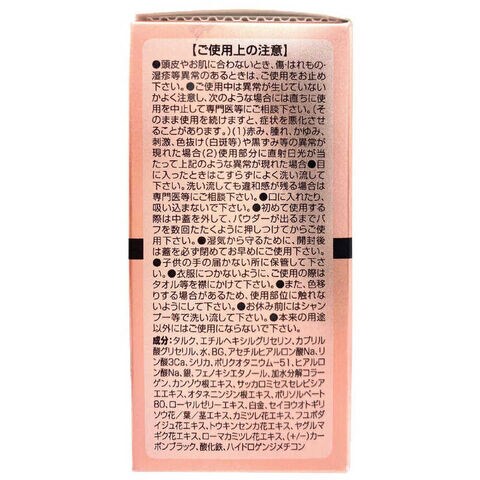 【ご使用上の注意】
●頭皮やお肌に合わないとき､傷･はれもの･
湿疹等異常のあるときは､ご使用をお止め
下さい｡●ご使用中は異常が生じていない
かよく注意し､次のような場合には直ちに使
用を中止して専門医等にご相談下さい｡(
そのまま使用を続けますと､症状を悪化させ
ることがあります｡)(1)赤み､腫れ､かゆみ､
刺激､色抜け(白斑等)や黒ずみ等の異常が
現れた場合(2)使用部分に直射日光が当
たって上記のような異常が現れた場合●目
に入ったときはこすらずによく洗い流して
下さい｡洗い流しても違和感が残る場合は
専門医等にご相談下さい｡●口に入れたり､
吸い込まないで下さい｡●初めて使用する
際は中蓋を外して､パウダーが出るまでパ
フを数回たたくように押しつけてからご使
用下さい｡●湿気から守るために､開封後
は蓋を必ず閉めてお早めにご使用下さい｡
●子供の手の届かない所に保管して下さ
い｡●衣服につかないように､ご使用の際は
タオル等を襟にかけて下さい｡●また､色移
りする場合があるため､使用部位に触れな
いようにして下さい｡●お休み前にはシャン
プー等で洗い流して下さい｡●本来の用途
以外にはご使用にならないで下さい｡
成分:タルク､エチルヘキシルグリセリン､カプリル
酸グリセリル､水､BG､アセチルヒアルロン酸Na､リ
ン酸3Ca､シリカ､ポリクオタニウム-51､ヒアルロ
ン酸Na､銀､フェノキシエタノール､加水分解コラー
ゲン､カンゾウ根エキス､サッカロミセスセレビシア
エエキス､オタネニンジン根エキス､ポリソルベート
80､ローヤルゼリーエキス､白金､セイヨウオトギリ
ソウ花／葉／茎エキス､カミツレ花エキス､フユボダ
イジュ花エキス､トウキンセンカ花エキス､ヤグルマ
ギク花エキス､ローマカミツレ花エキス､(+/-)カー
ボンブラック､酸化鉄､ハイドロゲンジメチコン